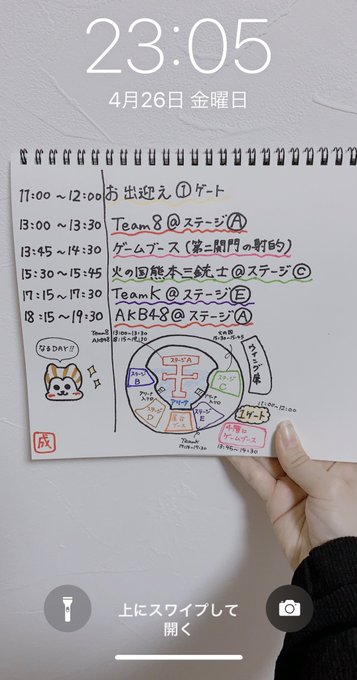 23:05
4月26日 金曜日
11:00 ~ 12:00 お出迎え ① ゲート
13:00 ~ 13:30 Team8 @ ステージ Ⓐ
13:45 ~ 14:30 ゲームブース (第二関門の射的)
15:30 ~ 15:45 火の国熊本三銃士 @ ステージ Ⓒ
17:15 ~ 17:30 TeamK @ ステージ Ⓔ
18:15 ~ 19:30 AKB48 @ ステージ Ⓐ
Team8 13:00-13:30
AKB48 18:15-19:30
火の国
15:30-15:45
なるDAY!!
ステージA
ステージ
B
ステージ
C
アリーナ
入り口
アリーナ
アリーナ
入り口
ステージ
D
屋台
ブース
ステージ
E
11:00-12:00
1ゲート
ゲームブース
13:45-14:30
TeamK
17:15-17:30
成
上にスワイプして
開く